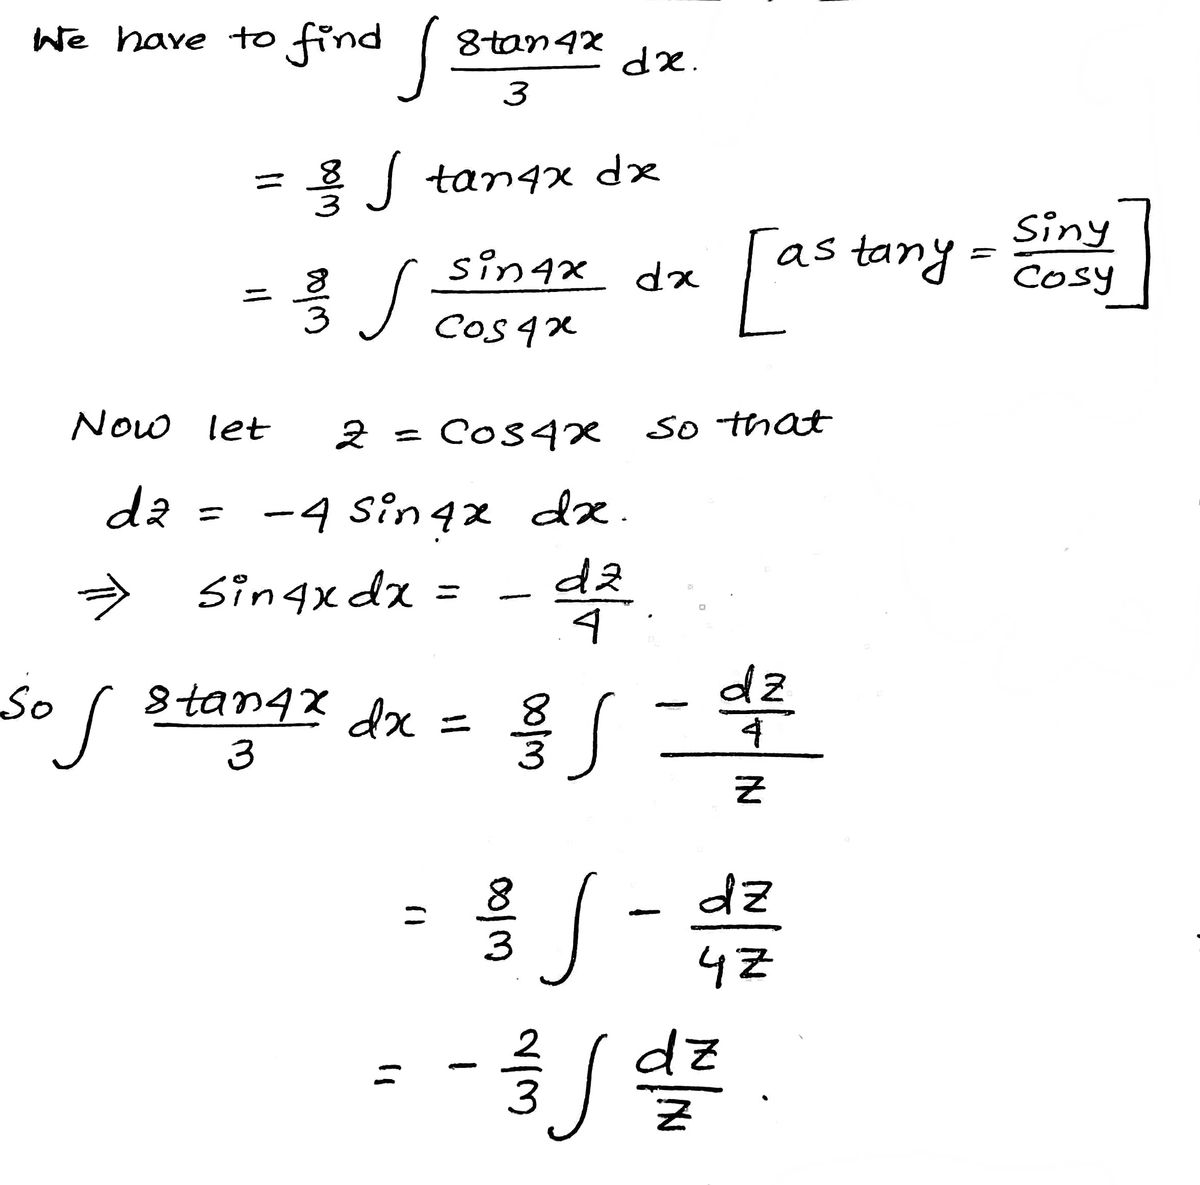 We have to find ∫ 8tan4x/3 dx.
= 8/3 ∫ tan4x dx
= 8/3 ∫ sin4x/Cos4x dx [as tany = Siny/Cosy]
Now let z = Cos4x so that
dz = -4 Sin4x dx.
⇒ Sin4x dx = - dz/4.
So ∫ 8tan4x/3 dx = 8/3 ∫ (- dz/4)/z
= 8/3 ∫ - dz/4z
= - 2/3 ∫ dz/z.